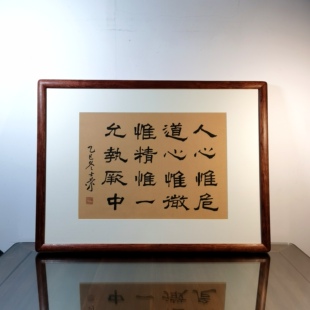 人心惟危
道心惟微
惟精惟一
允執厥中
乙巳